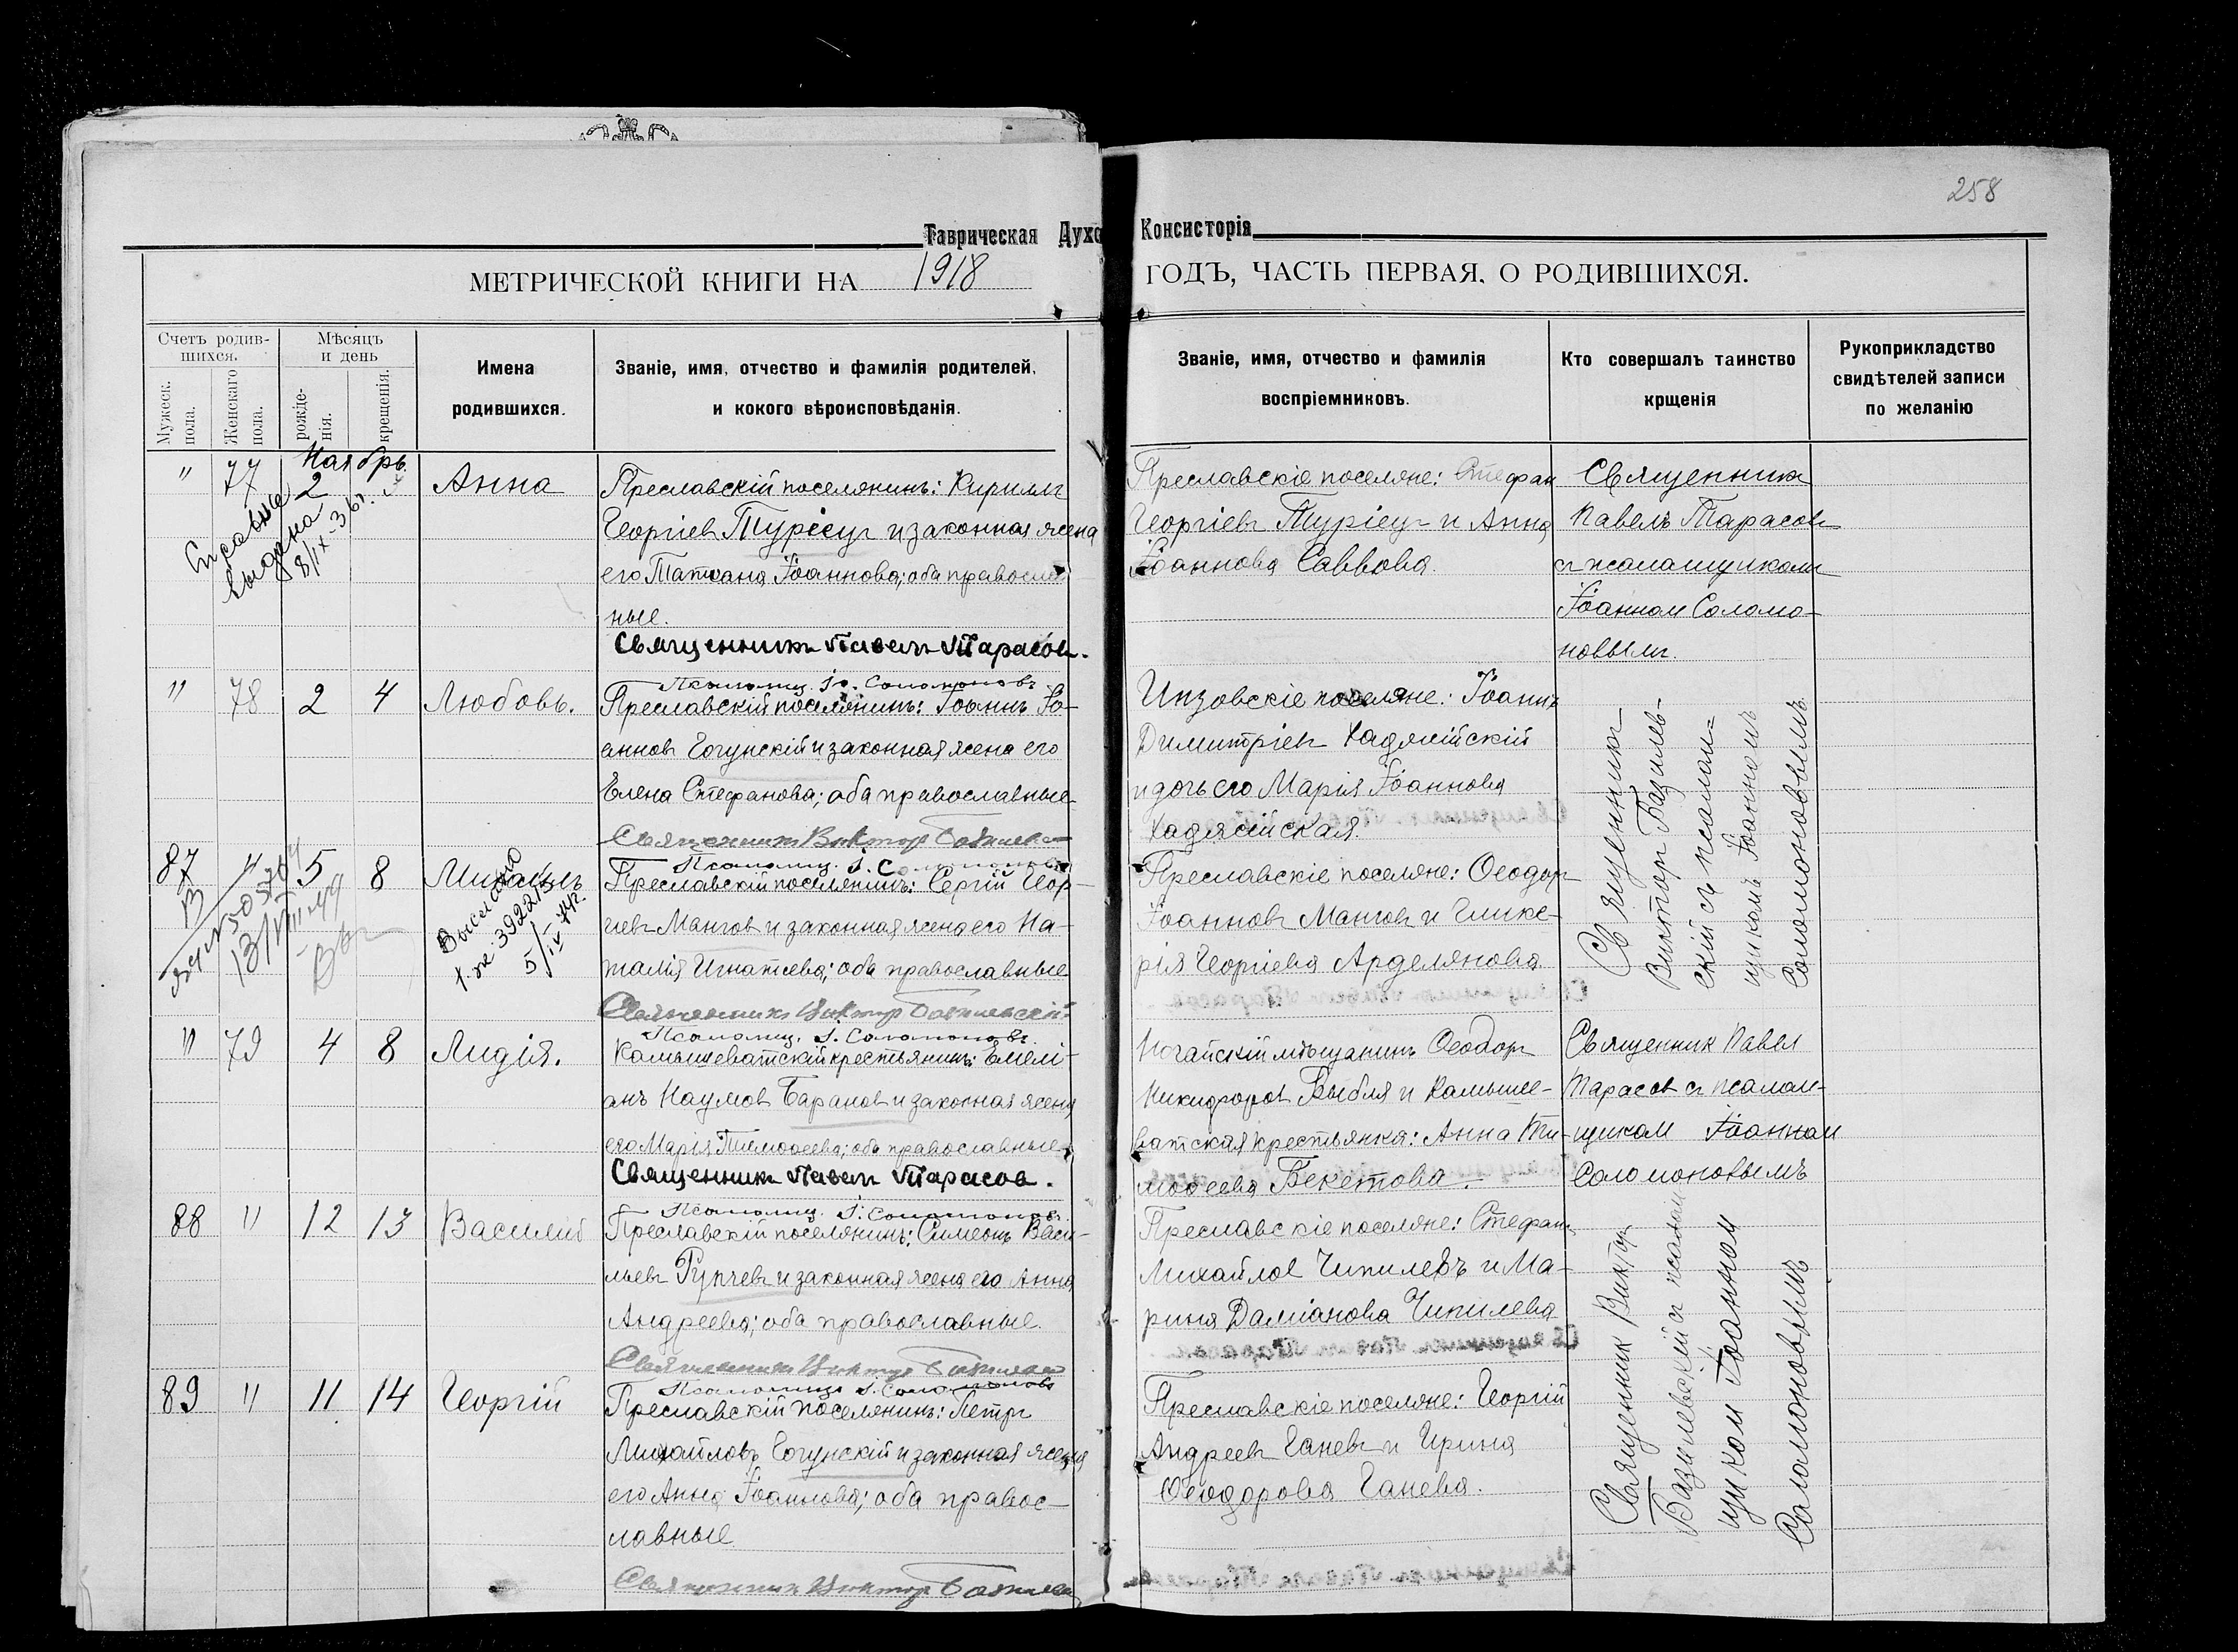 258
Таврическая Духо Консисторія
МЕТРИЧЕСКОЙ КНИГИ НА 1918 ГОДЪ, ЧАСТЬ ПЕРВАЯ, О РОДИВШИХСЯ.
Счетъ родив-
шихся.
Мужеск.
пола.
Женскаго
пола.
Мѣсяцъ
и день
рожде-
нія.
крещенія.
Имена
родившихся.
Званіе, имя, отчество и фамилія родителей,
и кокого вѣроисповѣданія.
Званіе, имя, отчество и фамилія
воспріемниковъ.
Кто совершалъ таинство
крщенія
Рукоприкладство
свидѣтелей записи
по желанію
Ноябрь
" 77 2 Анна
выдана
8/IX-36г.
Преславскій поселянинъ: Кириллъ
Георгіевъ Туріецъ и законная жена
его Татіана Іоаннова; оба православ
ные.
Священникъ Павелъ Тарасовъ.
Псаломщ. Іо. Соломоновъ
Преславскіе поселяне: Стефан
Георгіевъ Туріецъ и Анна
Іоаннова Саввова.
Священникъ
Павелъ Тарасовъ
съ псаломщикомъ
Іоанном Соломо-
новымъ.
" 78 2 4 Любовь.
Преславскій поселянинъ: Іоаннъ Іо-
анновъ Гогунскій и законная жена его
Елена Стефанова; оба православные
Священникъ Виктор Базилев
Псаломщ. І. Соломоновъ
Инзовскіе поселяне: Іоаннъ
Димитріевъ Хаджійскій
и дочь его Марія Іоаннова
Хаджійская.
Священникъ
Виктор Базилев-
скій съ псалом-
щикомъ Іоанномъ
Соломоновымъ
87 " 5 8 Михаилъ
13/VIII-49
5/IV-74г.
Преславскій поселянинъ: Сергій Геор-
гіевъ Мангов и законная жена его На-
талія Игнатьева; оба православные
Священникъ Виктор Базилевскій
Псаломщ. І. Соломоновъ.
Преславскіе поселяне: Ѳеодоръ
Іоанновъ Мангов и Глике-
рія Георгіева Арделянова
" 79 4 8 Лидія.
Камышеватскій крестьянинъ: Емелі-
анъ Наумов Баранов и законная жена
его Марія Тимоѳеева; оба православные
Священникъ Павелъ Тарасов.
Псаломщ. І. Соломоновъ
Ногайскій мѣщанинъ Ѳеодор
Никифоров Выбля и Камыше-
ватская крестьянка: Анна Ти-
моѳеева Бекетова.
Священник Павел
Тарасов съ псалом-
щиком Іоанном
Соломоновымъ
88 " 12 13 Василій
Преславскій поселянинъ: Симеонъ Васи-
льевъ Рупчевъ и законная жена его Анна
Андреева; оба православные.
Священникъ Виктор Базилев
Псаломщ. І. Соломоновъ
Преславскіе поселяне: Стефанъ
Михайлов Чипилевъ и Ма-
рина Даміанова Чипилева
Священник Виктор
Базилевскій съ псалом
щиком Іоанном
Соломоновымъ
89 " 11 14 Георгій
Преславскій поселянинъ: Петръ
Михайловъ Гогунскій и законная жена
его Анна Іоаннова; оба правос-
лавные
Священникъ Виктор Базилев
Преславскіе поселяне: Георгій
Андреевъ Ганевъ и Ирина
Ѳеодорова Ганева.